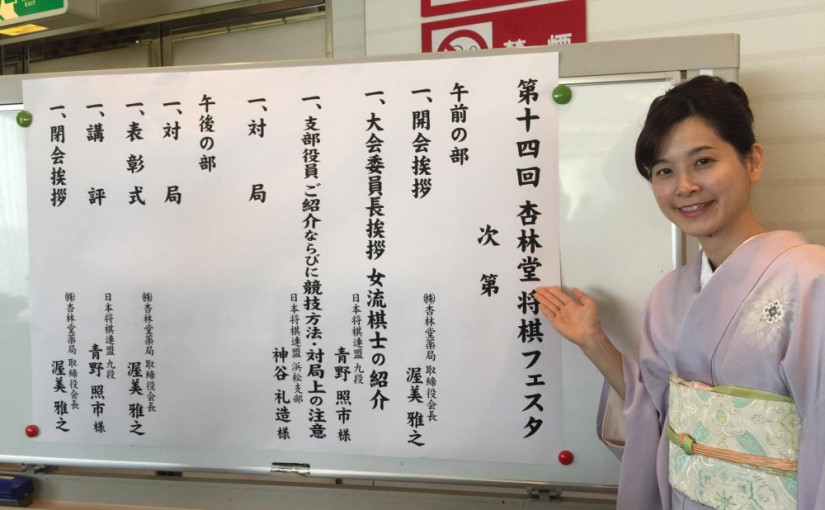 第十四回 杏林堂 将棋フェスタ
次第
午前の部
一、開会挨拶 ㈱杏林堂薬局 取締役会長 渥美 雅之
一、大会委員長挨拶 女流棋士の紹介
日本将棋連盟 九段 青野 照市 様
一、支部役員 ご紹介ならびに競技方法・対局上の注意
日本将棋連盟 浜松支部 神谷 礼造 様
一、対局
午後の部
一、対局
一、表彰式 ㈱杏林堂薬局 取締役会長 渥美 雅之
一、講評 日本将棋連盟 九段 青野 照市 様
一、閉会挨拶 ㈱杏林堂薬局 取締役会長 渥美 雅之
禁煙
EXIT